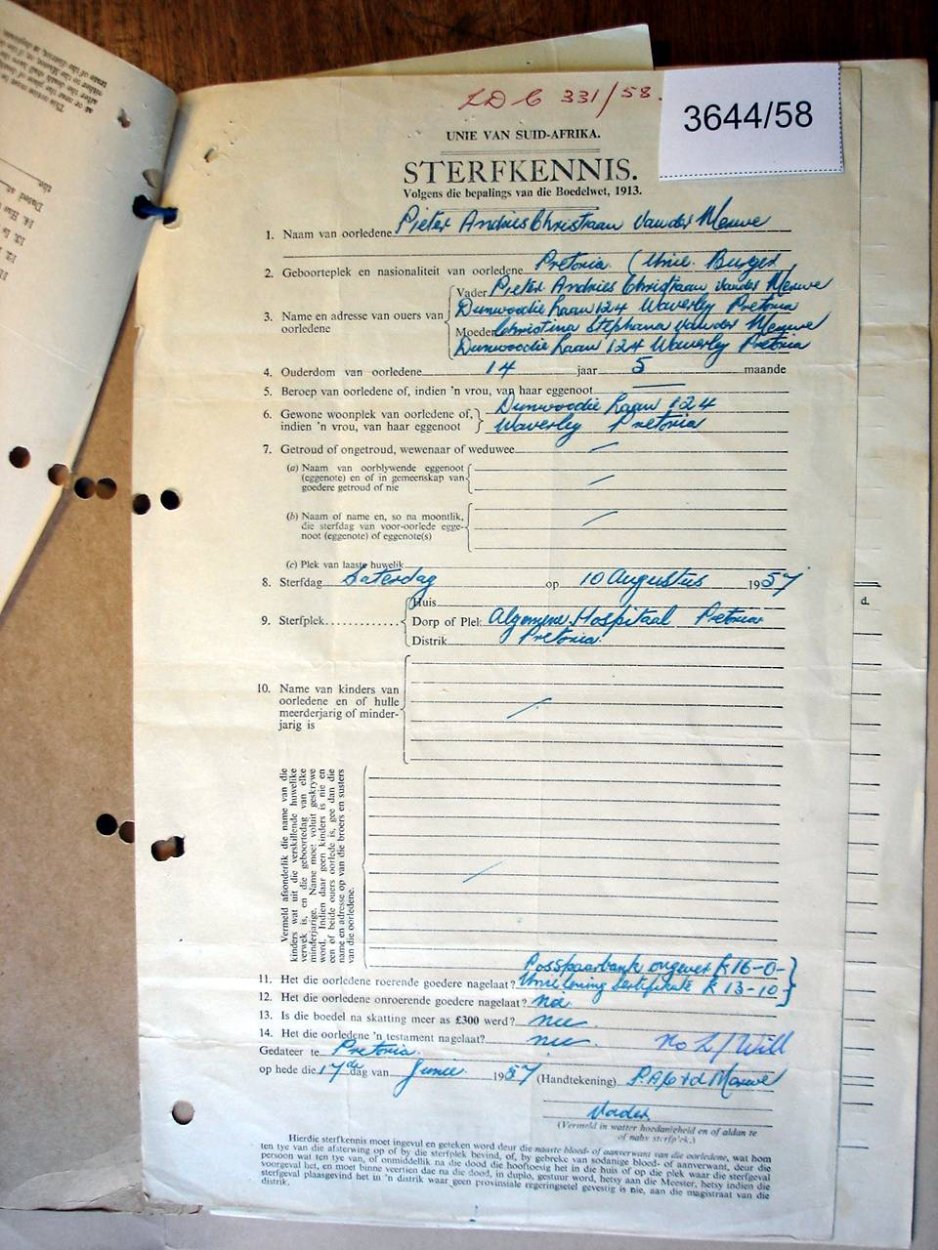 LDG 331/58.
3644/58
UNIE VAN SUID-AFRIKA.
STERFKENNIS.
Volgens die bepalings van die Boedelwet, 1913.
1. Naam van oorledene Pieter Andries Christiaan van der Merwe
2. Geboorteplek en nasionaliteit van oorledene Pretoria (Unie. Burger
3. Name en adresse van ouers van oorledene
Vader Pieter Andries Christiaan van der Merwe
Dunwoodie Laan 124 Waverley Pretoria
Moeder Christina Stephana van der Merwe
Dunwoodie Laan 124 Waverley Pretoria
4. Ouderdom van oorledene 14 jaar 5 maande
5. Beroep van oorledene of, indien 'n vrou, van haar eggenoot
6. Gewone woonplek van oorledene of, indien 'n vrou, van haar eggenoot
Dunwoodie Laan 124
Waverley Pretoria
7. Getroud of ongetroud, wewenaar of weduwee
(a) Naam van oorblywende eggenoot
(eggenote) en of in gemeenskap van
goedere getroud of nie
(b) Naam of name en, so na moontlik,
die sterfdag van voor-oorlede egge-
noot (eggenote) of eggenote(s)
(c) Plek van laaste huwelik
8. Sterfdag Saterdag op 10 Augustus 1957
9. Sterfplek
Huis
Dorp of Plek Algemene Hospitaal Pretoria
Distrik Pretoria
10. Name van kinders van
oorledene en of hulle
meerderjarig of minder-
jarig is
Vermeld afsonderlik die name van die
kinders wat uit die verskillende huwelike
verwek is, en die geboortedag van elke
minderjarige. Name moet voluit geskrywe
word. Indien daar geen kinders is nie en
een of beide ouers oorlede is, gee dan die
name en adresse op van die broers en susters
van die oorledene.
11. Het die oorledene roerende goedere nagelaat?
Posspaarbank ongeveer £16-0-
Unie lening sertifikate £13-10
12. Het die oorledene onroerende goedere nagelaat? nee
13. Is die boedel na skatting meer as £300 werd? nee
14. Het die oorledene 'n testament nagelaat? nee. No L/Will
Gedateer te Pretoria
op hede die 17de dag van Junie 1957 (Handtekening) P.A.C. v d Merwe
Vader
(Vermeld in watter hoedanigheid en of aldan te
of naby sterfplek.)
Hierdie sterfkennis moet ingevul en geteken word deur die naaste bloed- of aanverwant van die oorledene, wat
ten tye van die afsterwing op of by die sterfplek bevind, of, by gebreke van sodanige bloed- of aanverwant, deur die
persoon wat ten tye van, of onmiddellik na die dood die hooftoesig het in die huis of op die plek waar die sterfgeval
voorgeval het, en moet binne veertien dae na die dood, in duplo, gestuur word, hetsy aan die Meester, hetsy indien die
sterfgeval plaasgevind het in 'n distrik waar geen provinsiale regeringsetel gevestig is nie, aan die magistraat van die
distrik.